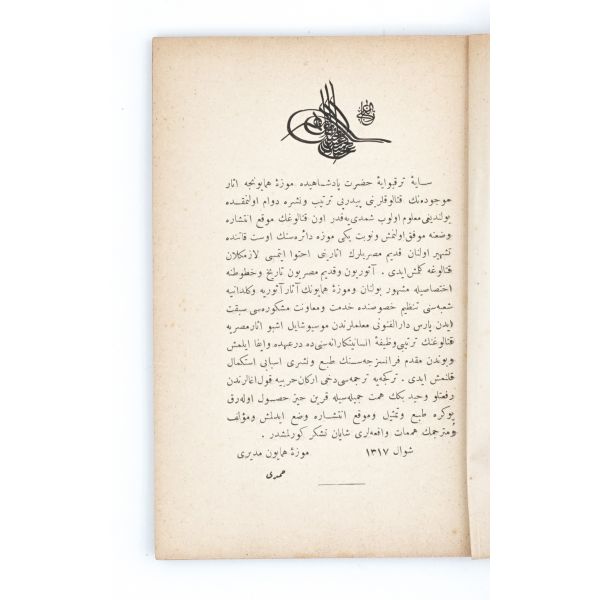 سایهٔ ترقیوایهٔ حضرت پادشاهیده موزهٔ همایونجه آثار
موجوده‌نك قتالوقلرینی پیدرپی ترتیب و نشره دوام اولنمقده
بولندیغی معلوم اولوب شمدی‌یه قدر اون قتالوغك موقع انتشاره
وضعنه موفق اولنمش و نوبت یکی موزه دائره‌سنك اوست قاتنده
تشهیر اولنان قدیم مصریلرك آثارینی احتوا ایتمسی لازمکلان
قتالوغه کلمش ایدی . آثوریون وقدیم مصریون تاریخ و خطوطنه
اختصاصیله مشهور بولنان و موزهٔ همایونك آثار آثوریه و کلدانیه
شعبه‌سنی تنظیم خصوصنده خدمت و معاونت مشکوره‌سی سبقت
ایدن پارس دارالفنونی معلملرندن موسیو شایل اشبو آثار مصریه
قتالوغنك ترتیبی وظیفهٔ انسانیتکارانه‌سنی ده درعهده و ایفا ایلمش
وبوندن مقدم فرانسزجه‌سنك طبع و نشری اسبابی استکمال
قلنمش ایدی . ترکجه‌یه ترجمه‌سی دخی ارکان حربیه قول اغالرندن
رفعتلو وحید بكك همت جمیله‌سیله قرین حیز حصول اوله‌رق
بوکره طبع و تمثیل و موقع انتشاره وضع ایدلمش و مؤلف
و مترجمك همهات واقعه‌لری شایان تشکر کورلمشدر .
شوال ۱۳۱۷ موزهٔ همایون مدیری
حمدی